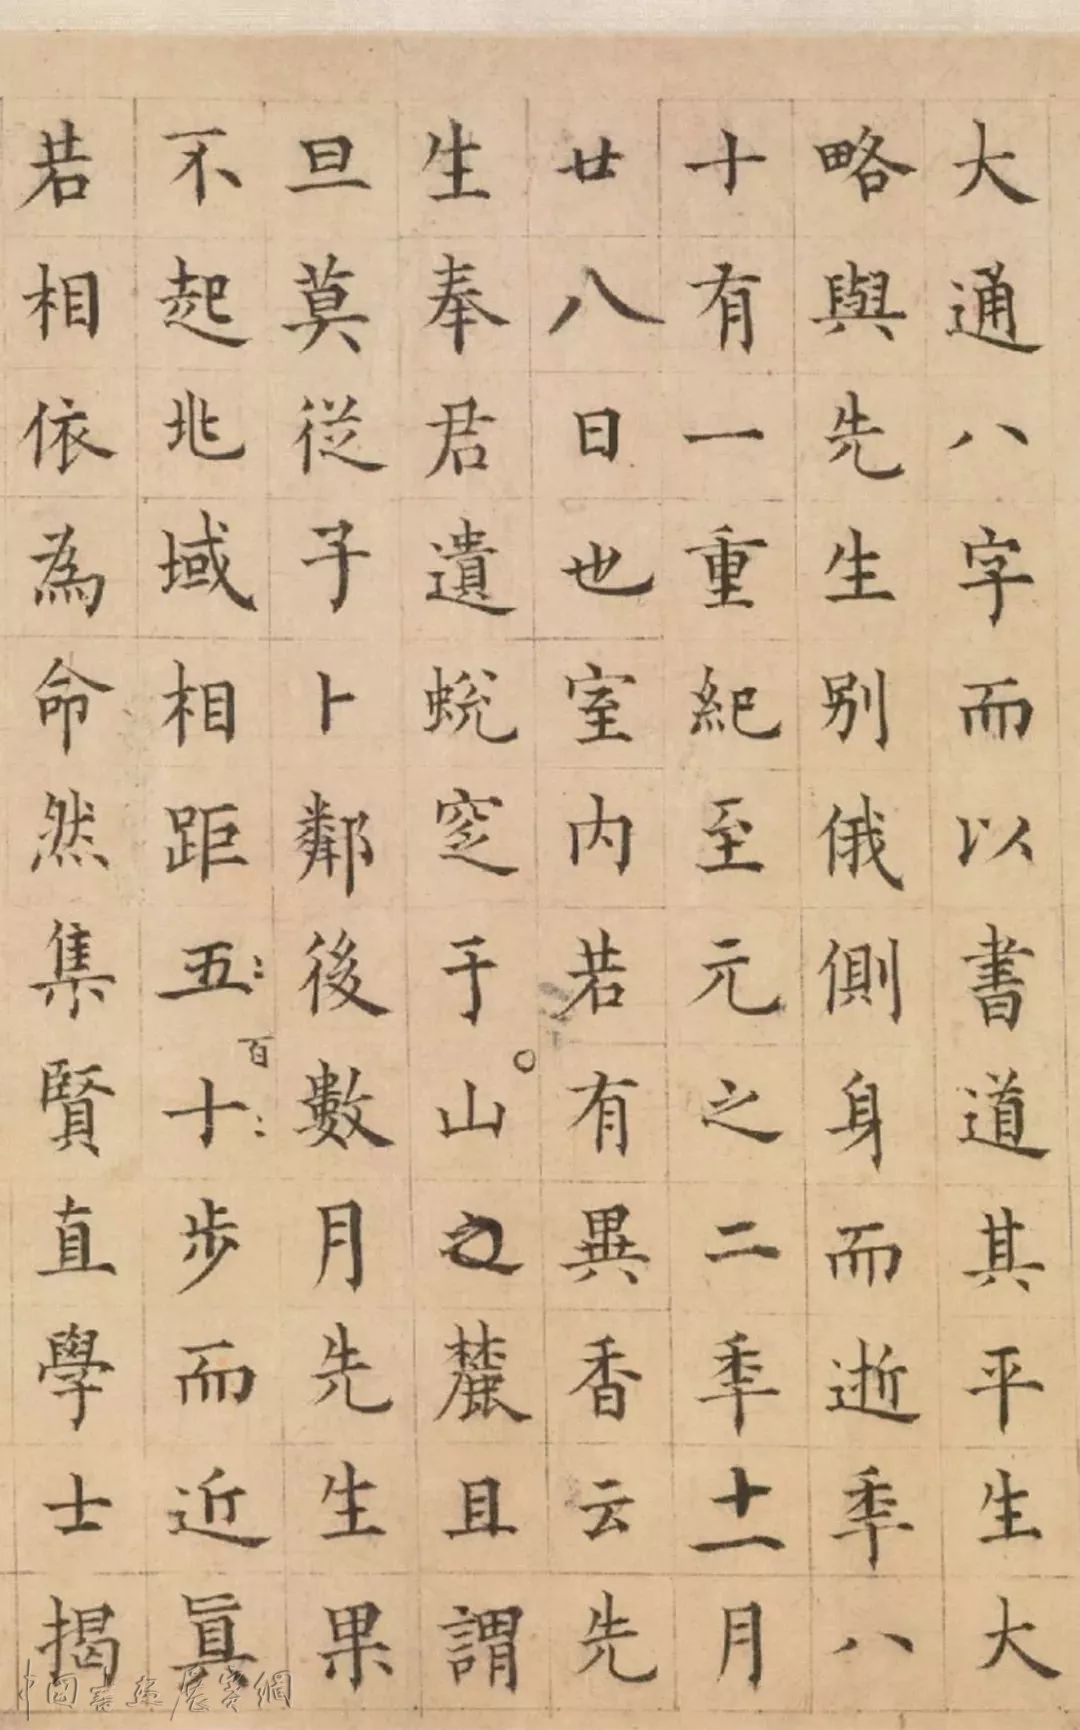 大通八字而以書道其平生大
略與先生別俄側身而逝秊八
十有一重紀至元之二秊十一月
廿八日也室内若有異香云先
生奉君遺蛻窆于山之麓且謂
旦莫從子卜鄰後數月先生果
不起兆域相距五十步而近眞
百
若相依為命然集賢直學士揭
中國書畫展賽網